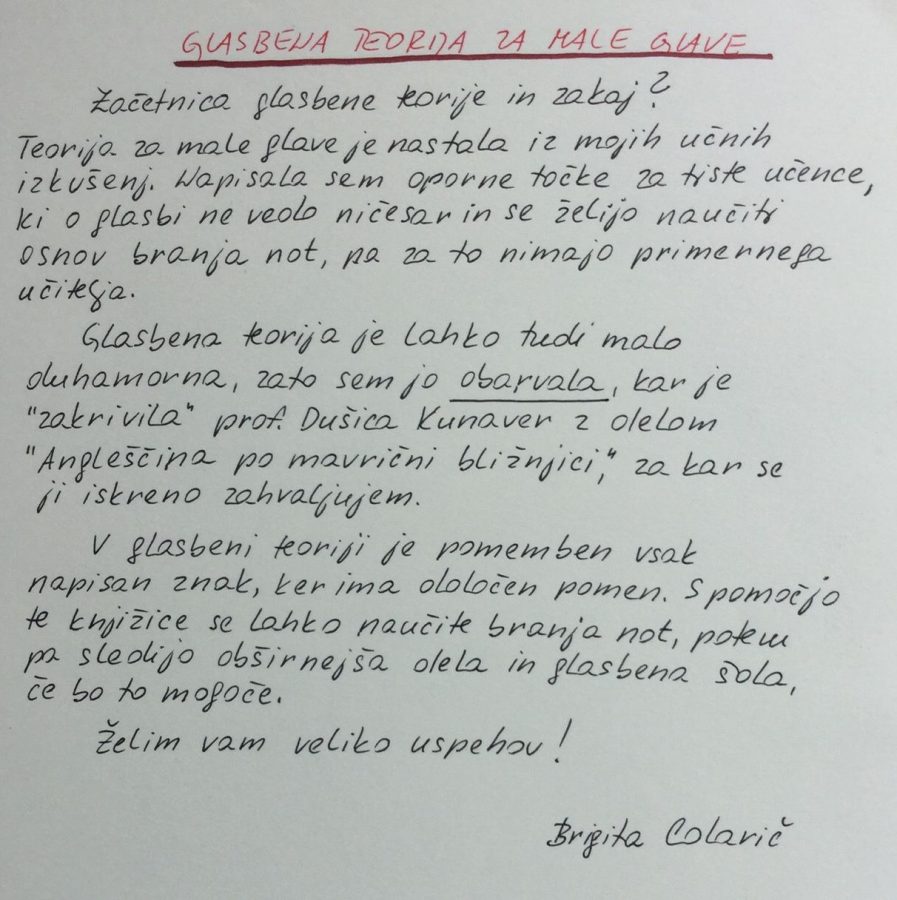 GLASBENA TEORIJA ZA MALE GLAVE
Začetnica glasbene teorije in zakaj?
Teorija za male glave je nastala iz mojih učnih
izkušenj. Napisala sem oporne točke za tiste učence,
ki o glasbi ne vedo ničesar in se želijo naučiti
osnov branja not, pa za to nimajo primernega
učitelja.
Glasbena teorija je lahko tudi malo
duhamorna, zato sem jo obarvala, kar je
"zakrivila" prof. Dušica Kunaver z delom
"Angleščina po mavrični bližnjici," za kar se
ji iskreno zahvaljujem.
V glasbeni teoriji je pomemben vsak
napisan znak, ker ima določen pomen. S pomočjo
te knjižice se lahko naučite branja not, potem
pa sledijo obširnejša dela in glasbena šola,
če bo to mogoče.
Želim vam veliko uspehov!
Brigita Colarič